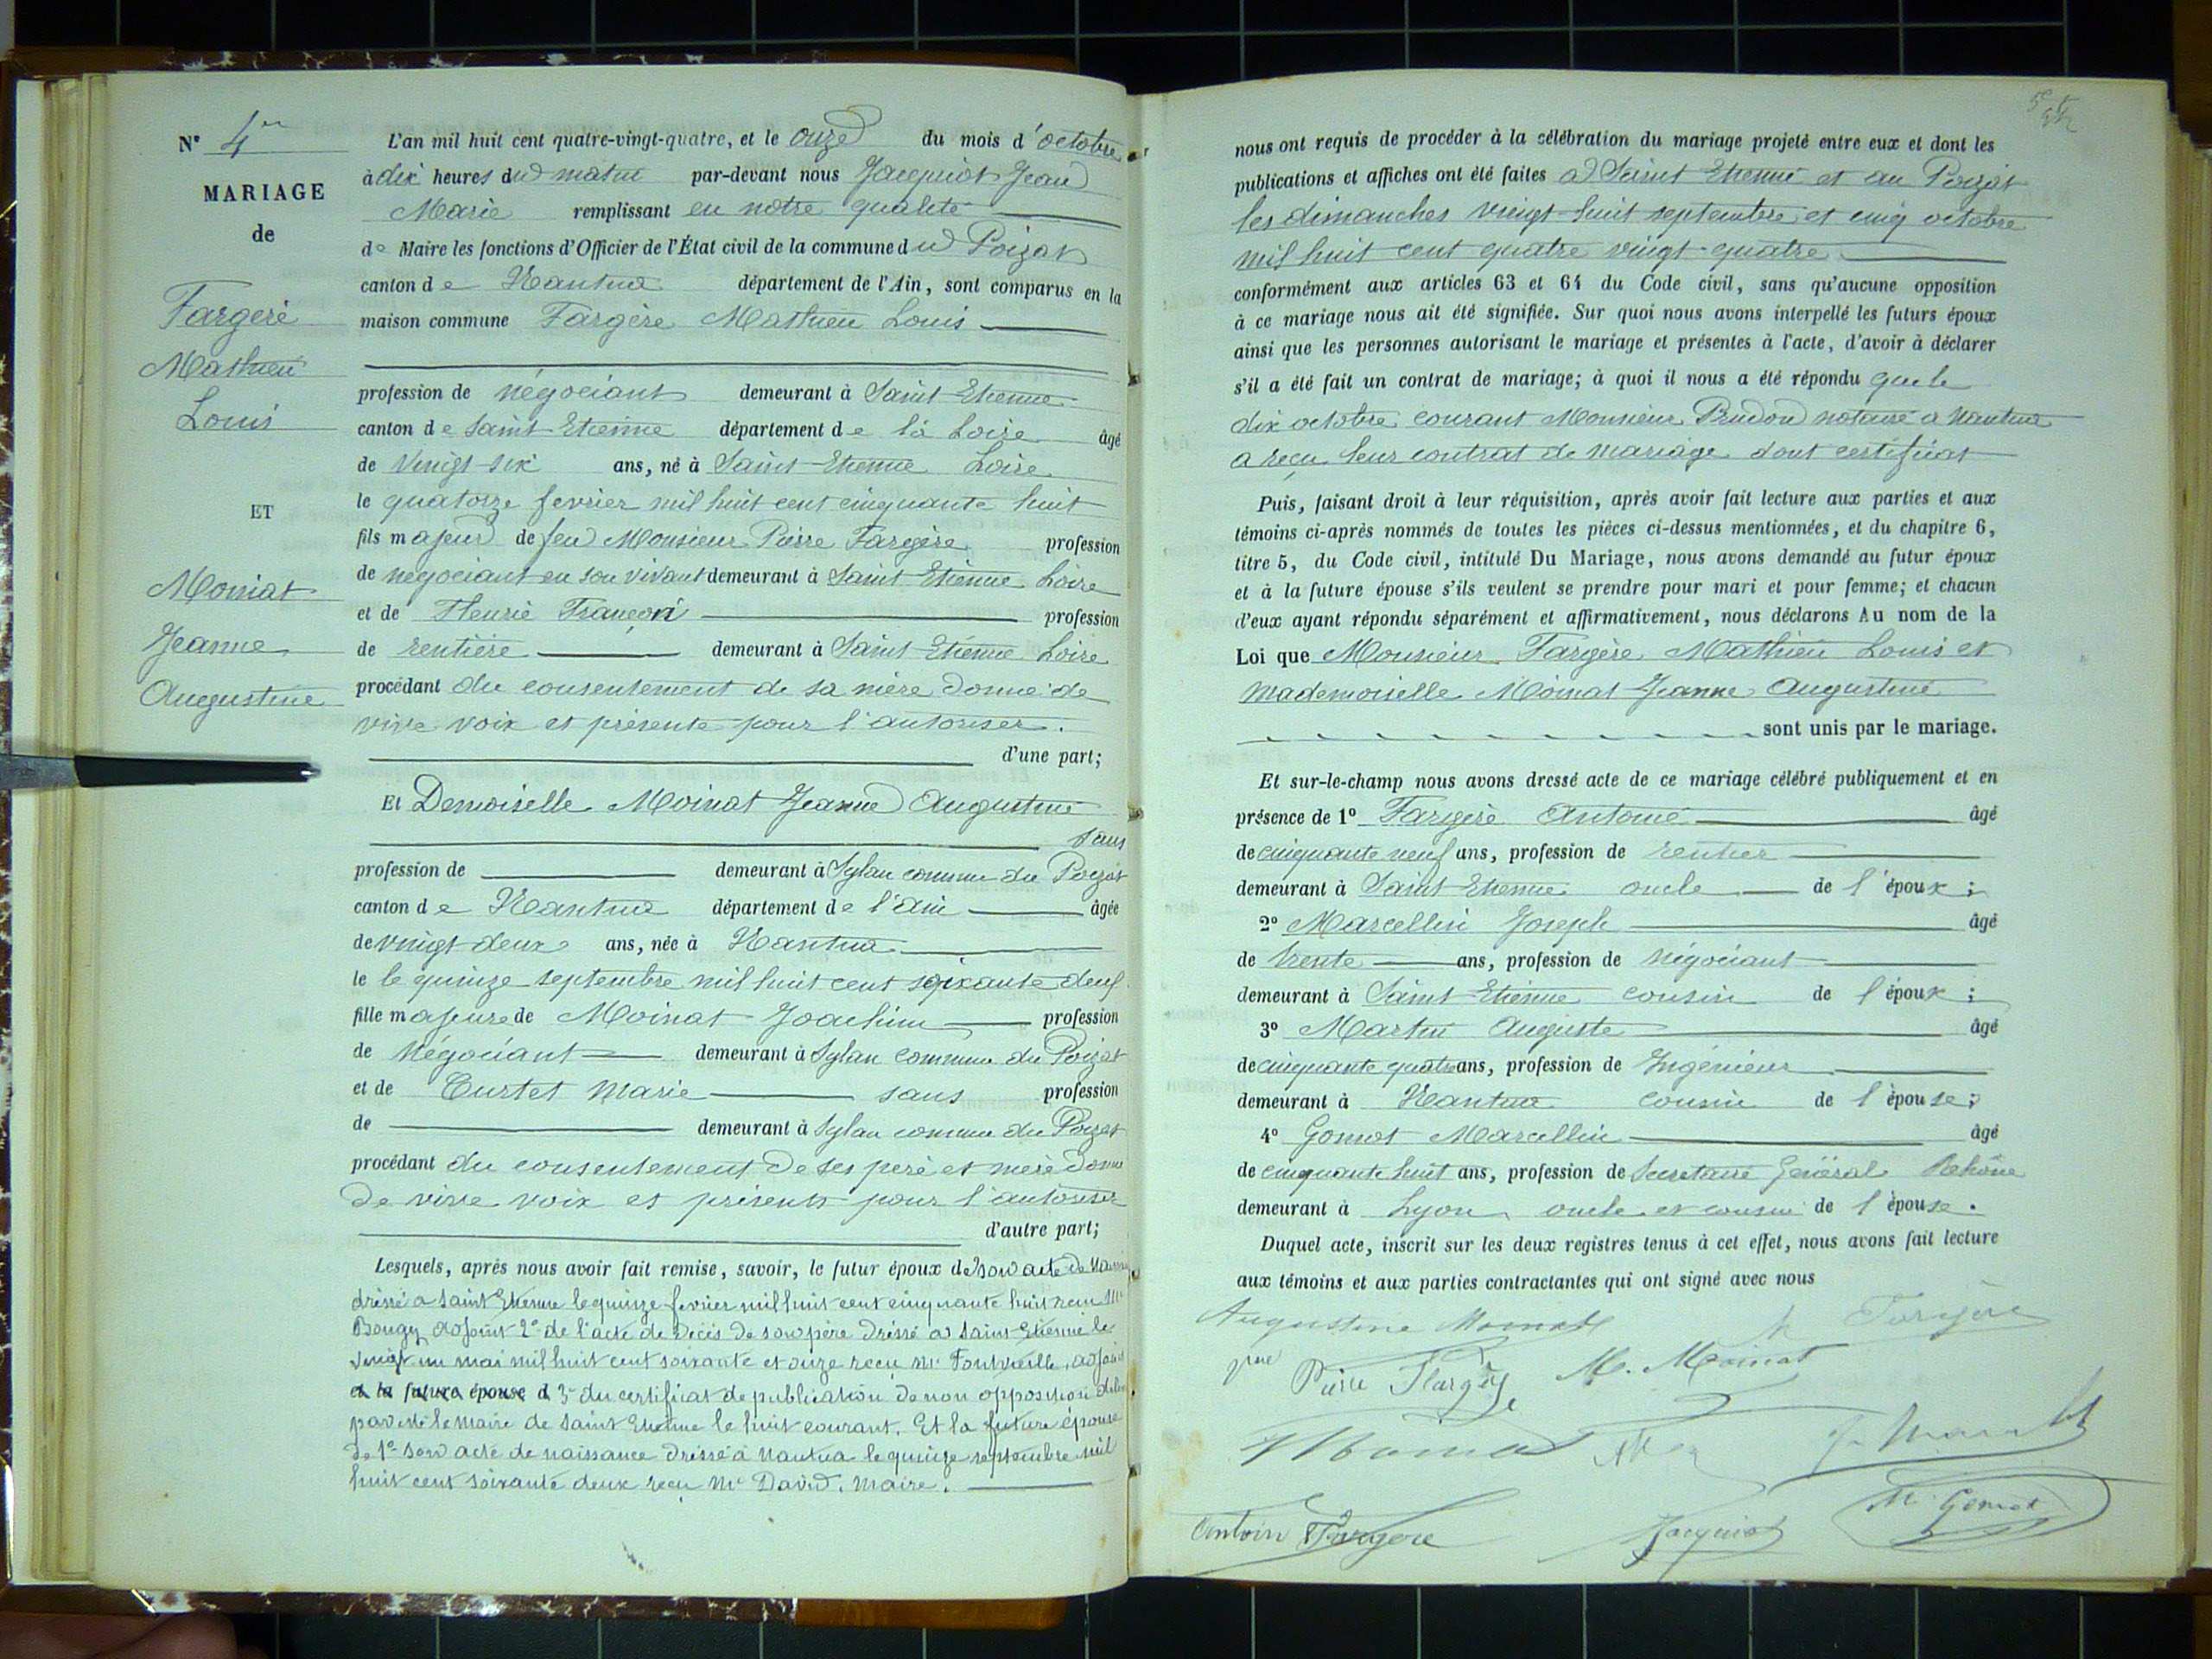 N° 4
MARIAGE
de
Fargère
Mathieu
Louis
ET
Moinat
Jeanne
Augustine
L'an mil huit cent quatre-vingt-quatre, et le onze du mois d'octobre
à dix heures du matin par-devant nous Jacquiot Jean
Marie remplissant en notre qualité
de Maire les fonctions d'Officier de l'État civil de la commune du Poizat
canton de Nantua département de l'Ain, sont comparus en la
maison commune Fargère Mathieu Louis
profession de négociant demeurant à Saint Etienne
canton de Saint Etienne département de la Loire âgé
de vingt six ans, né à Saint-Etienne Loire
le quatorze fevrier mil huit cent cinquante huit
fils majeur de feu Monsieur Pierre Fargère profession
de negociant en son vivant demeurant à Saint Etienne Loire
et de Fleurie Françon profession
de rentière demeurant à Saint Etienne Loire
procédant du consentement de sa mère donné de
vive voix et présente pour l'autoriser.
d'une part;
Et Demoiselle Moinat Jeanne Augustine
sans
profession de demeurant à Sylan commune du Poizat
canton de Nantua département de l'Ain âgée
de vingt deux ans, née à Nantua
le le quinze septembre mil huit cent soixante deux
fille majeure de Moinat Joachim profession
de Négociant demeurant à Sylan commune du Poizat
et de Curtet Marie sans profession
de demeurant à Sylan commune du Poizat
procédant du consentement de ses père et mère donné
de vive voix et présents pour l'autoriser
d'autre part;
Lesquels, après nous avoir fait remise, savoir, le futur époux de son acte de
dréssé a Saint Etienne le quinze fevrier mil huit cent cinquante huit recu Mr
Bougy adjoint 2° de l'acte de décès de son père dréssé a Saint-Etienne le
vingt un mai mil huit cent soixante et onze recu Mr Fontvieille, adjoint
et la future épouse d 3° du certificat de publication de non opposition
par le maire de Saint Etienne le huit courant. Et la future épouse
de 1° son acte de naissance dréssé à Nantua le quinze septembre mil
huit cent soixante deux reçu Mr David, maire.
nous ont requis de procéder à la célébration du mariage projeté entre eux et dont les
publications et affiches ont été faites a Saint Etienne et au Poizat
les dimanches vingt-huit septembre et cinq octobre
mil huit cent quatre vingt-quatre
conformément aux articles 63 et 64 du Code civil, sans qu'aucune opposition
à ce mariage nous ait été signifiée. Sur quoi nous avons interpellé les futurs époux
ainsi que les personnes autorisant le mariage et présentes à l'acte, d'avoir à déclarer
s'il a été fait un contrat de mariage; à quoi il nous a été répondu que le
dix octobre courant Monsieur Prudon notaire a Nantua
a reçu leur contrat de mariage dont certificat
Puis, faisant droit à leur réquisition, après avoir fait lecture aux parties et aux
témoins ci-après nommés de toutes les pièces ci-dessus mentionnées, et du chapitre 6,
titre 5, du Code civil, intitulé Du Mariage, nous avons demandé au futur époux
et à la future épouse s'ils veulent se prendre pour mari et pour femme; et chacun
d'eux ayant répondu séparément et affirmativement, nous déclarons Au nom de la
Loi que Monsieur Fargère Mathieu Louis et
Mademoiselle Moinat Jeanne Augustine
sont unis par le mariage.
Et sur-le-champ nous avons dressé acte de ce mariage célébré publiquement et en
présence de 1° Fargère Antoine âgé
de cinquante neuf ans, profession de rentier
demeurant à Saint Etienne oncle de l'époux;
2° Marcellin Joseph âgé
de trente ans, profession de négociant
demeurant à Saint-Etienne cousin de l'époux;
3° Martin Auguste âgé
de cinquante quatre ans, profession de Ingénieur
demeurant à Nantua cousin de l'épouse;
4° Gomot Marcellin âgé
de cinquante huit ans, profession de Secretaire Général Rhône
demeurant à Lyon oncle et cousin de l'épouse.
Duquel acte, inscrit sur les deux registres tenus à cet effet, nous avons fait lecture
aux témoins et aux parties contractantes qui ont signé avec nous
Augustine Moinat Fargère
Pierre Fargère M. Moinat
Antoine Fargere Jacquiot M. Gomot